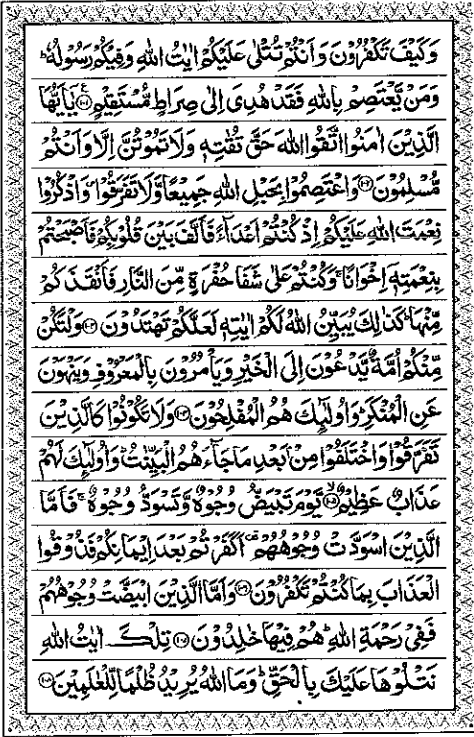 وَكَيْفَ تَكْفُرُوْنَ وَاَنْتُمْ تُتْلٰى عَلَيْكُمْ اٰيٰتُ اللّٰهِ وَفِيْكُمْ رَسُوْلُهٗ ؕ
وَمَنْ يَّعْتَصِمْ بِاللّٰهِ فَقَدْ هُدِىَ اِلٰى صِرَاطٍ مُّسْتَقِيْمٍ ﴿۱۰۱﴾ يٰۤاَيُّهَا
الَّذِيْنَ اٰمَنُوا اتَّقُوا اللّٰهَ حَقَّ تُقٰتِهٖ وَلَا تَمُوْتُنَّ اِلَّا وَاَنْتُمْ
مُّسْلِمُوْنَ ﴿۱۰۲﴾ وَاعْتَصِمُوْا بِحَبْلِ اللّٰهِ جَمِيْعًا وَّلَا تَفَرَّقُوْا ۪ وَاذْكُرُوْا
نِعْمَتَ اللّٰهِ عَلَيْكُمْ اِذْ كُنْتُمْ اَعْدَآءً فَاَلَّفَ بَيْنَ قُلُوْبِكُمْ فَاَصْبَحْتُمْ
بِنِعْمَتِهٖۤ اِخْوَانًا ۚ وَكُنْتُمْ عَلٰى شَفَا حُفْرَةٍ مِّنَ النَّارِ فَاَنْقَذَكُمْ
مِّنْهَا ؕ كَذٰلِكَ يُبَيِّنُ اللّٰهُ لَكُمْ اٰيٰتِهٖ لَعَلَّكُمْ تَهْتَدُوْنَ ﴿۱۰۳﴾ وَلْتَكُنْ
مِّنْكُمْ اُمَّةٌ يَّدْعُوْنَ اِلَى الْخَيْرِ وَيَاْمُرُوْنَ بِالْمَعْرُوْفِ وَيَنْهَوْنَ
عَنِ الْمُنْكَرِ ؕ وَاُولٰٓئِكَ هُمُ الْمُفْلِحُوْنَ ﴿۱۰۴﴾ وَلَا تَكُوْنُوْا كَالَّذِيْنَ
تَفَرَّقُوْا وَاخْتَلَفُوْا مِنْۢ بَعْدِ مَا جَآءَهُمُ الْبَيِّنٰتُ ؕ وَاُولٰٓئِكَ لَهُمْ
عَذَابٌ عَظِيْمٌ ﴿۱۰۵﴾ يَّوْمَ تَبْيَضُّ وُجُوْهٌ وَّتَسْوَدُّ وُجُوْهٌ ۚ فَاَمَّا
الَّذِيْنَ اسْوَدَّتْ وُجُوْهُهُمْ ۟ اَكَفَرْتُمْ بَعْدَ اِيْمَانِكُمْ فَذُوْقُوا
الْعَذَابَ بِمَا كُنْتُمْ تَكْفُرُوْنَ ﴿۱۰۶﴾ وَاَمَّا الَّذِيْنَ ابْيَضَّتْ وُجُوْهُهُمْ
فَفِىْ رَحْمَةِ اللّٰهِ ؕ هُمْ فِيْهَا خٰلِدُوْنَ ﴿۱۰۷﴾ تِلْكَ اٰيٰتُ اللّٰهِ
نَتْلُوْهَا عَلَيْكَ بِالْحَقِّ ؕ وَمَا اللّٰهُ يُرِيْدُ ظُلْمًا لِّلْعٰلَمِيْنَ ﴿۱۰۸﴾